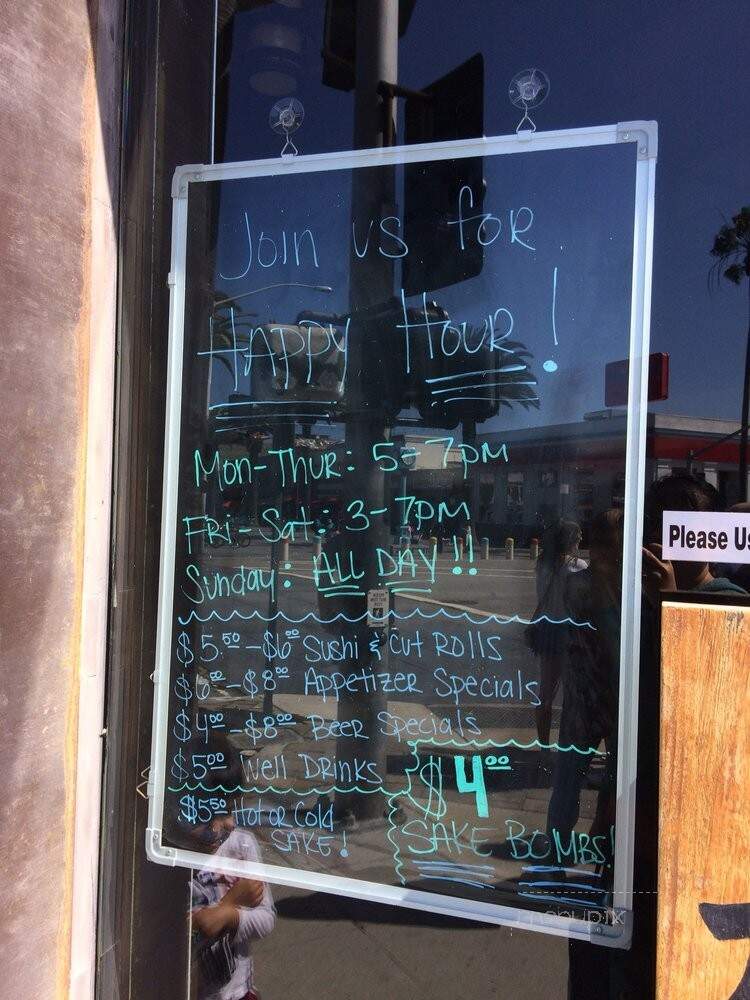 Join us for
Happy Hour!
Mon-Thur: 5-7pm
Fri.-Sat.: 3-7pm
Sunday: ALL DAY!!
$5.50-$6.00 Sushi & Cut Rolls
$6.00-$8.00 Appetizer Specials
$4.00-$8.00 Beer Specials
$5.00 Well Drinks
$5.50 Hot or Cold
SAKE!
$4.00
SAKE BOMBS!
Please Us